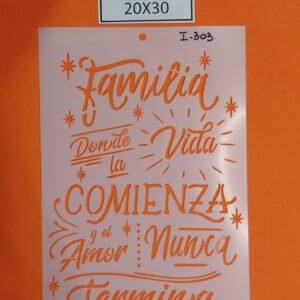 20X30
I-303
Familia
Donde Vida
la
COMIENZA
y el
Amor Nunca
Termina